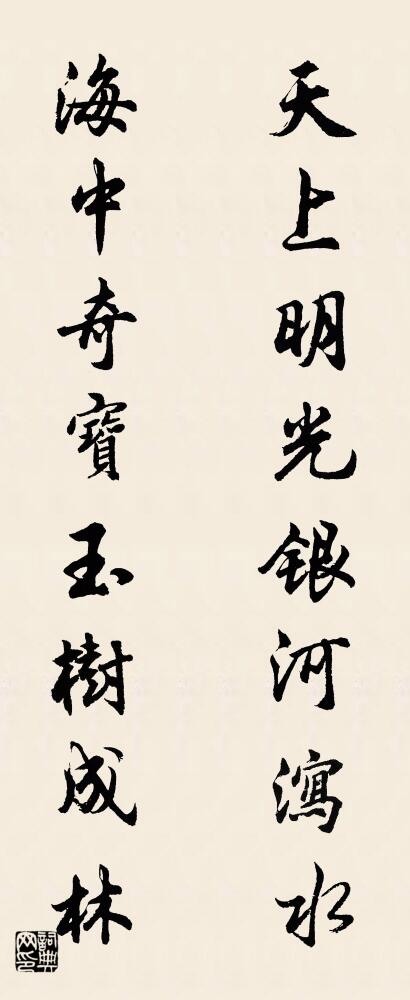 天上明光銀河瀉水
海中奇寶玉樹成林
詞典网印